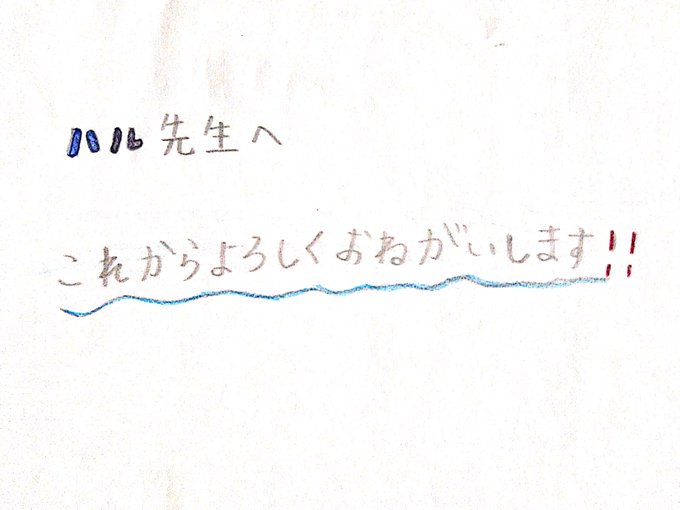 ハル先生へ
これからよろしくおねがいします!!